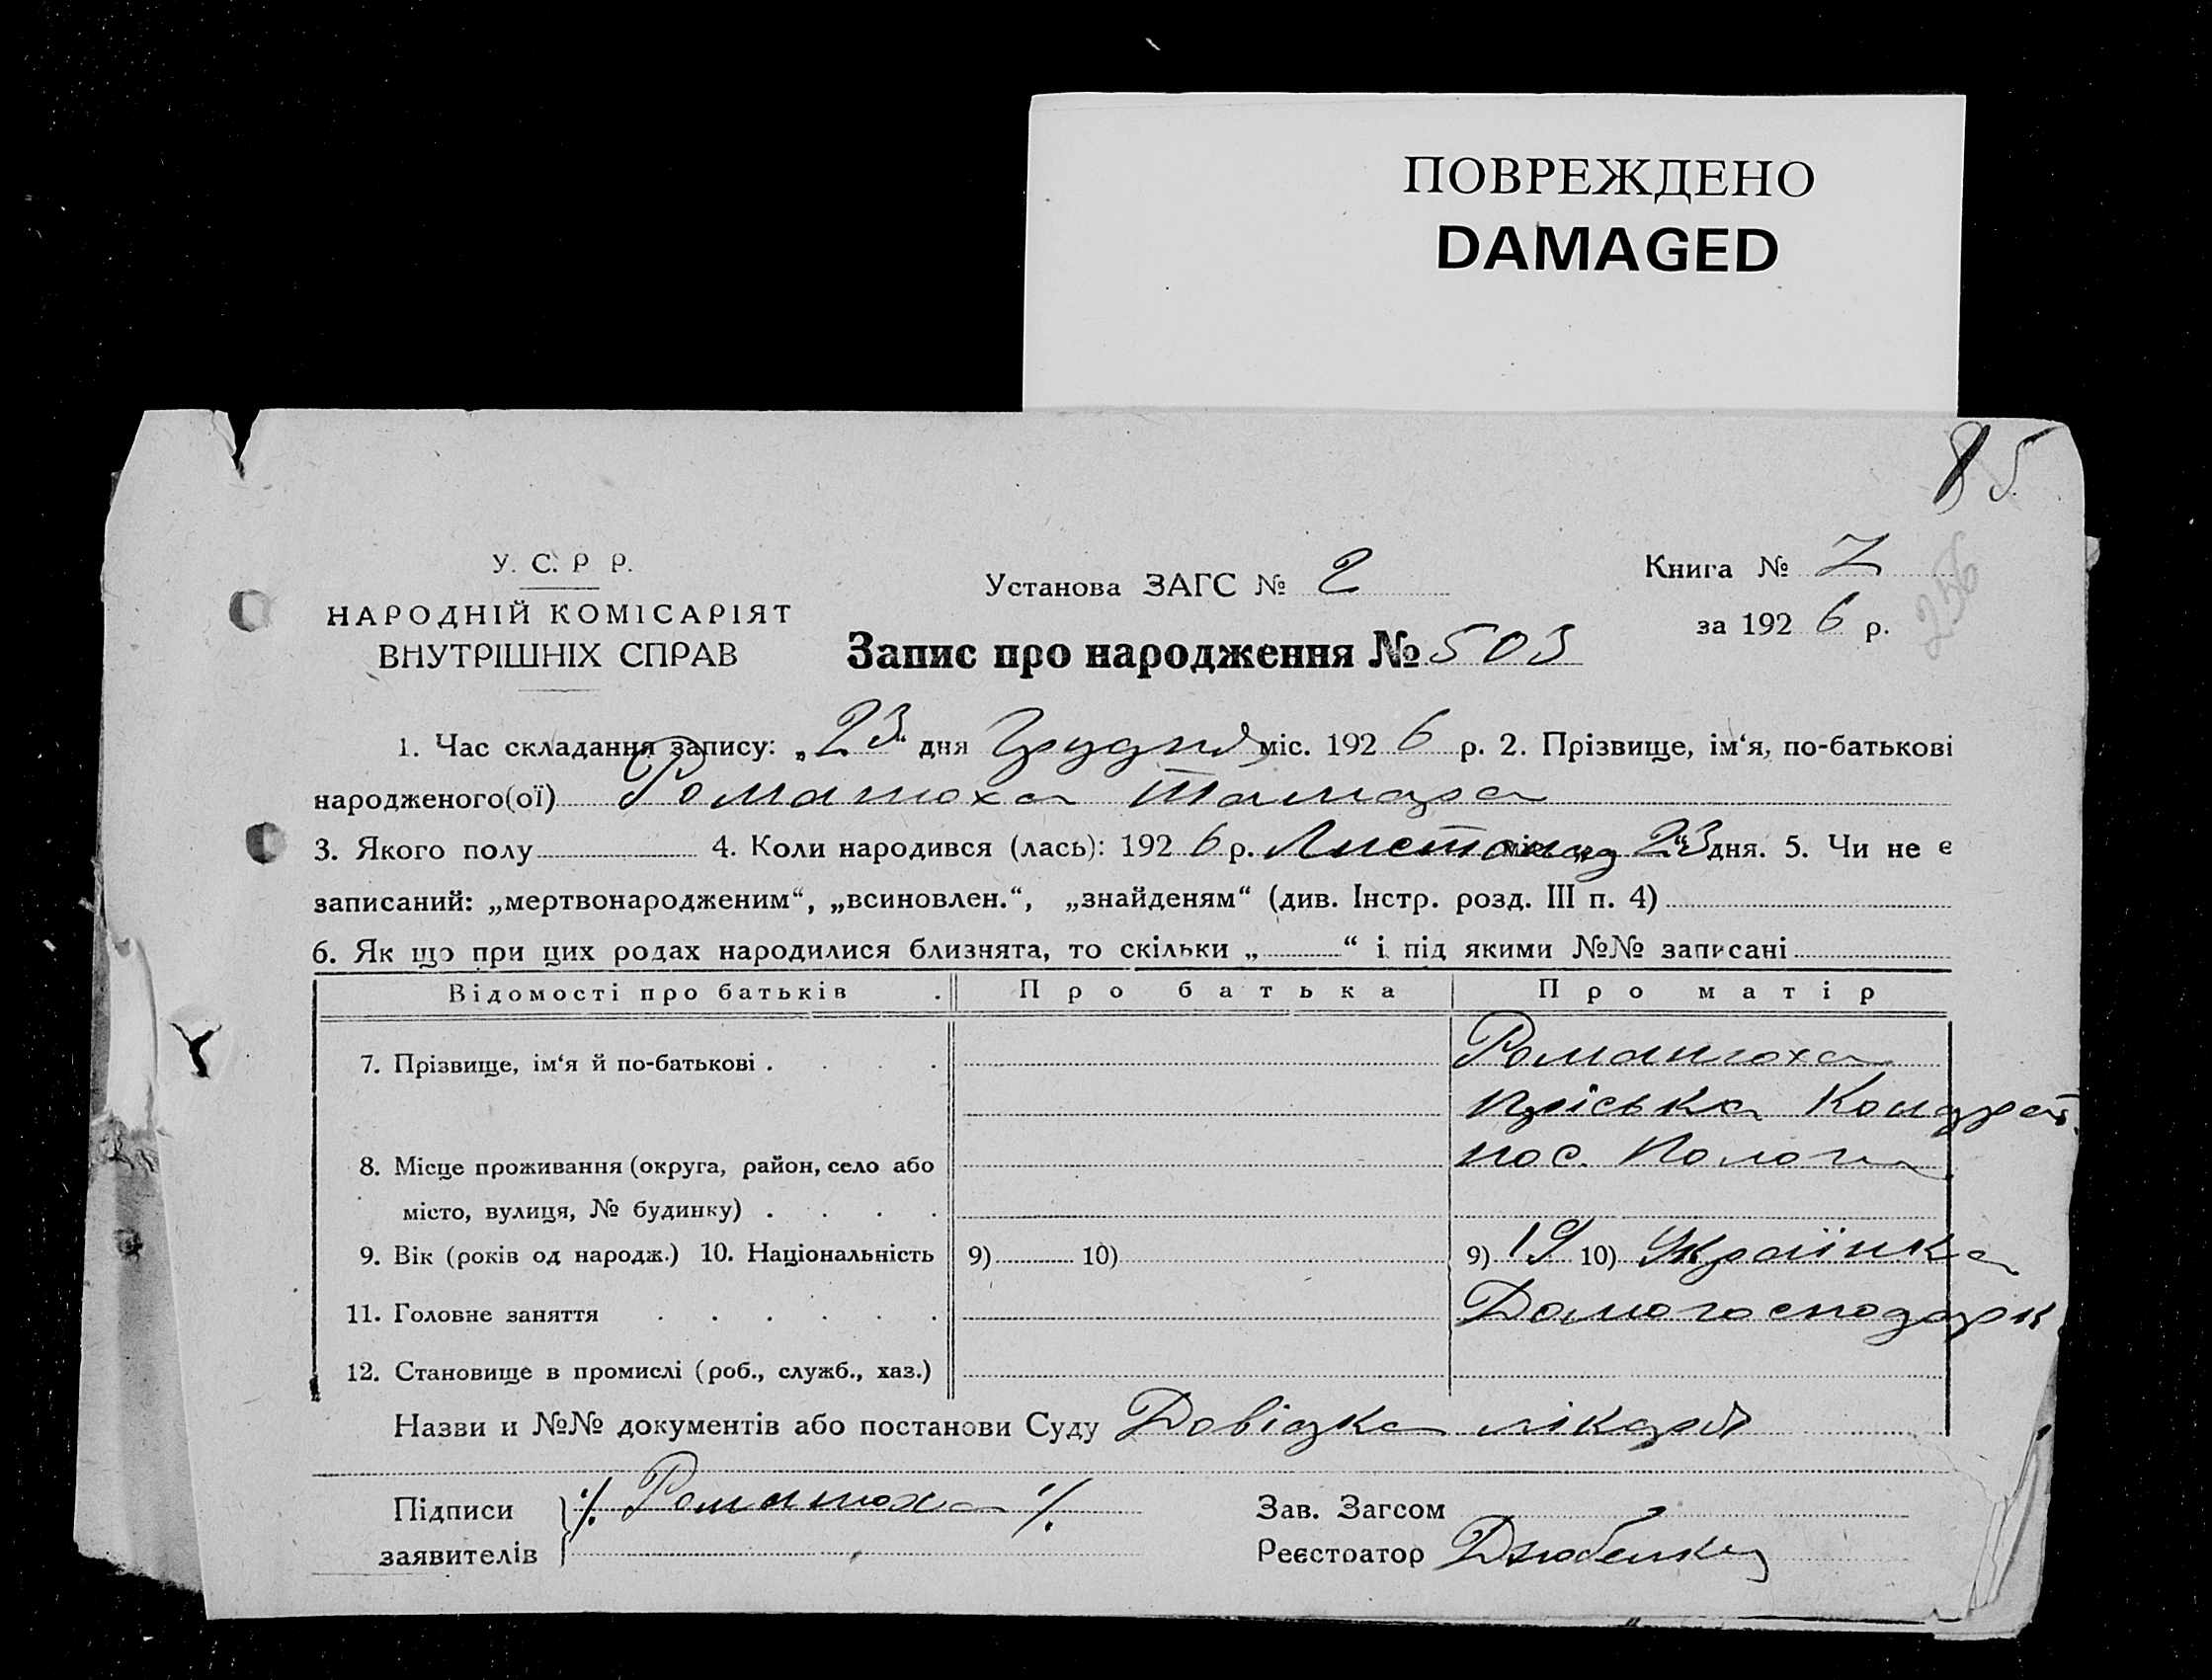 ПОВРЕЖДЕНО
DAMAGED
85
256
У. С. Р Р.
НАРОДНІЙ КОМІСАРІЯТ
ВНУТРІШНІХ СПРАВ
Установа ЗАГС № 2
Книга № 7
за 1926 р.
Запис про народження № 503
1. Час складання запису: „23“ дня Грудня міс. 1926 р. 2. Прізвище, ім‘я, по-батькові
народженого(ої) Романюха Тамара
3. Якого полу 4. Коли народився (лась): 1926 р. Листопад міс. „23“ дня. 5. Чи не є
записаний: „мертвонародженим“, „всиновлен.“, „знайденям“ (див. Інстр. розд. III п. 4)
6. Як що при цих родах народилися близнята, то скільки „ “ і під якими №№ записані
Відомості про батьків Про батька Про матір
7. Прізвище, ім‘я й по-батькові . . . . Романюха
Пріська Кондрат.
8. Місце проживання (округа, район, село або пос. Пологи
місто, вулиця, № будинку) . . . .
9. Вік (років од народж.) 10. Національність 9) 10) 9) 19 10) Українка
11. Головне заняття . . . . . . Домогосподарк
12. Становище в промислі (роб., служб., хаз.)
Назви и №№ документів або постанови Суду Довідка лікаря
Підписи ./. Романюха ./.
заявителів
Зав. Загсом
Реєстратор Дзюбенко